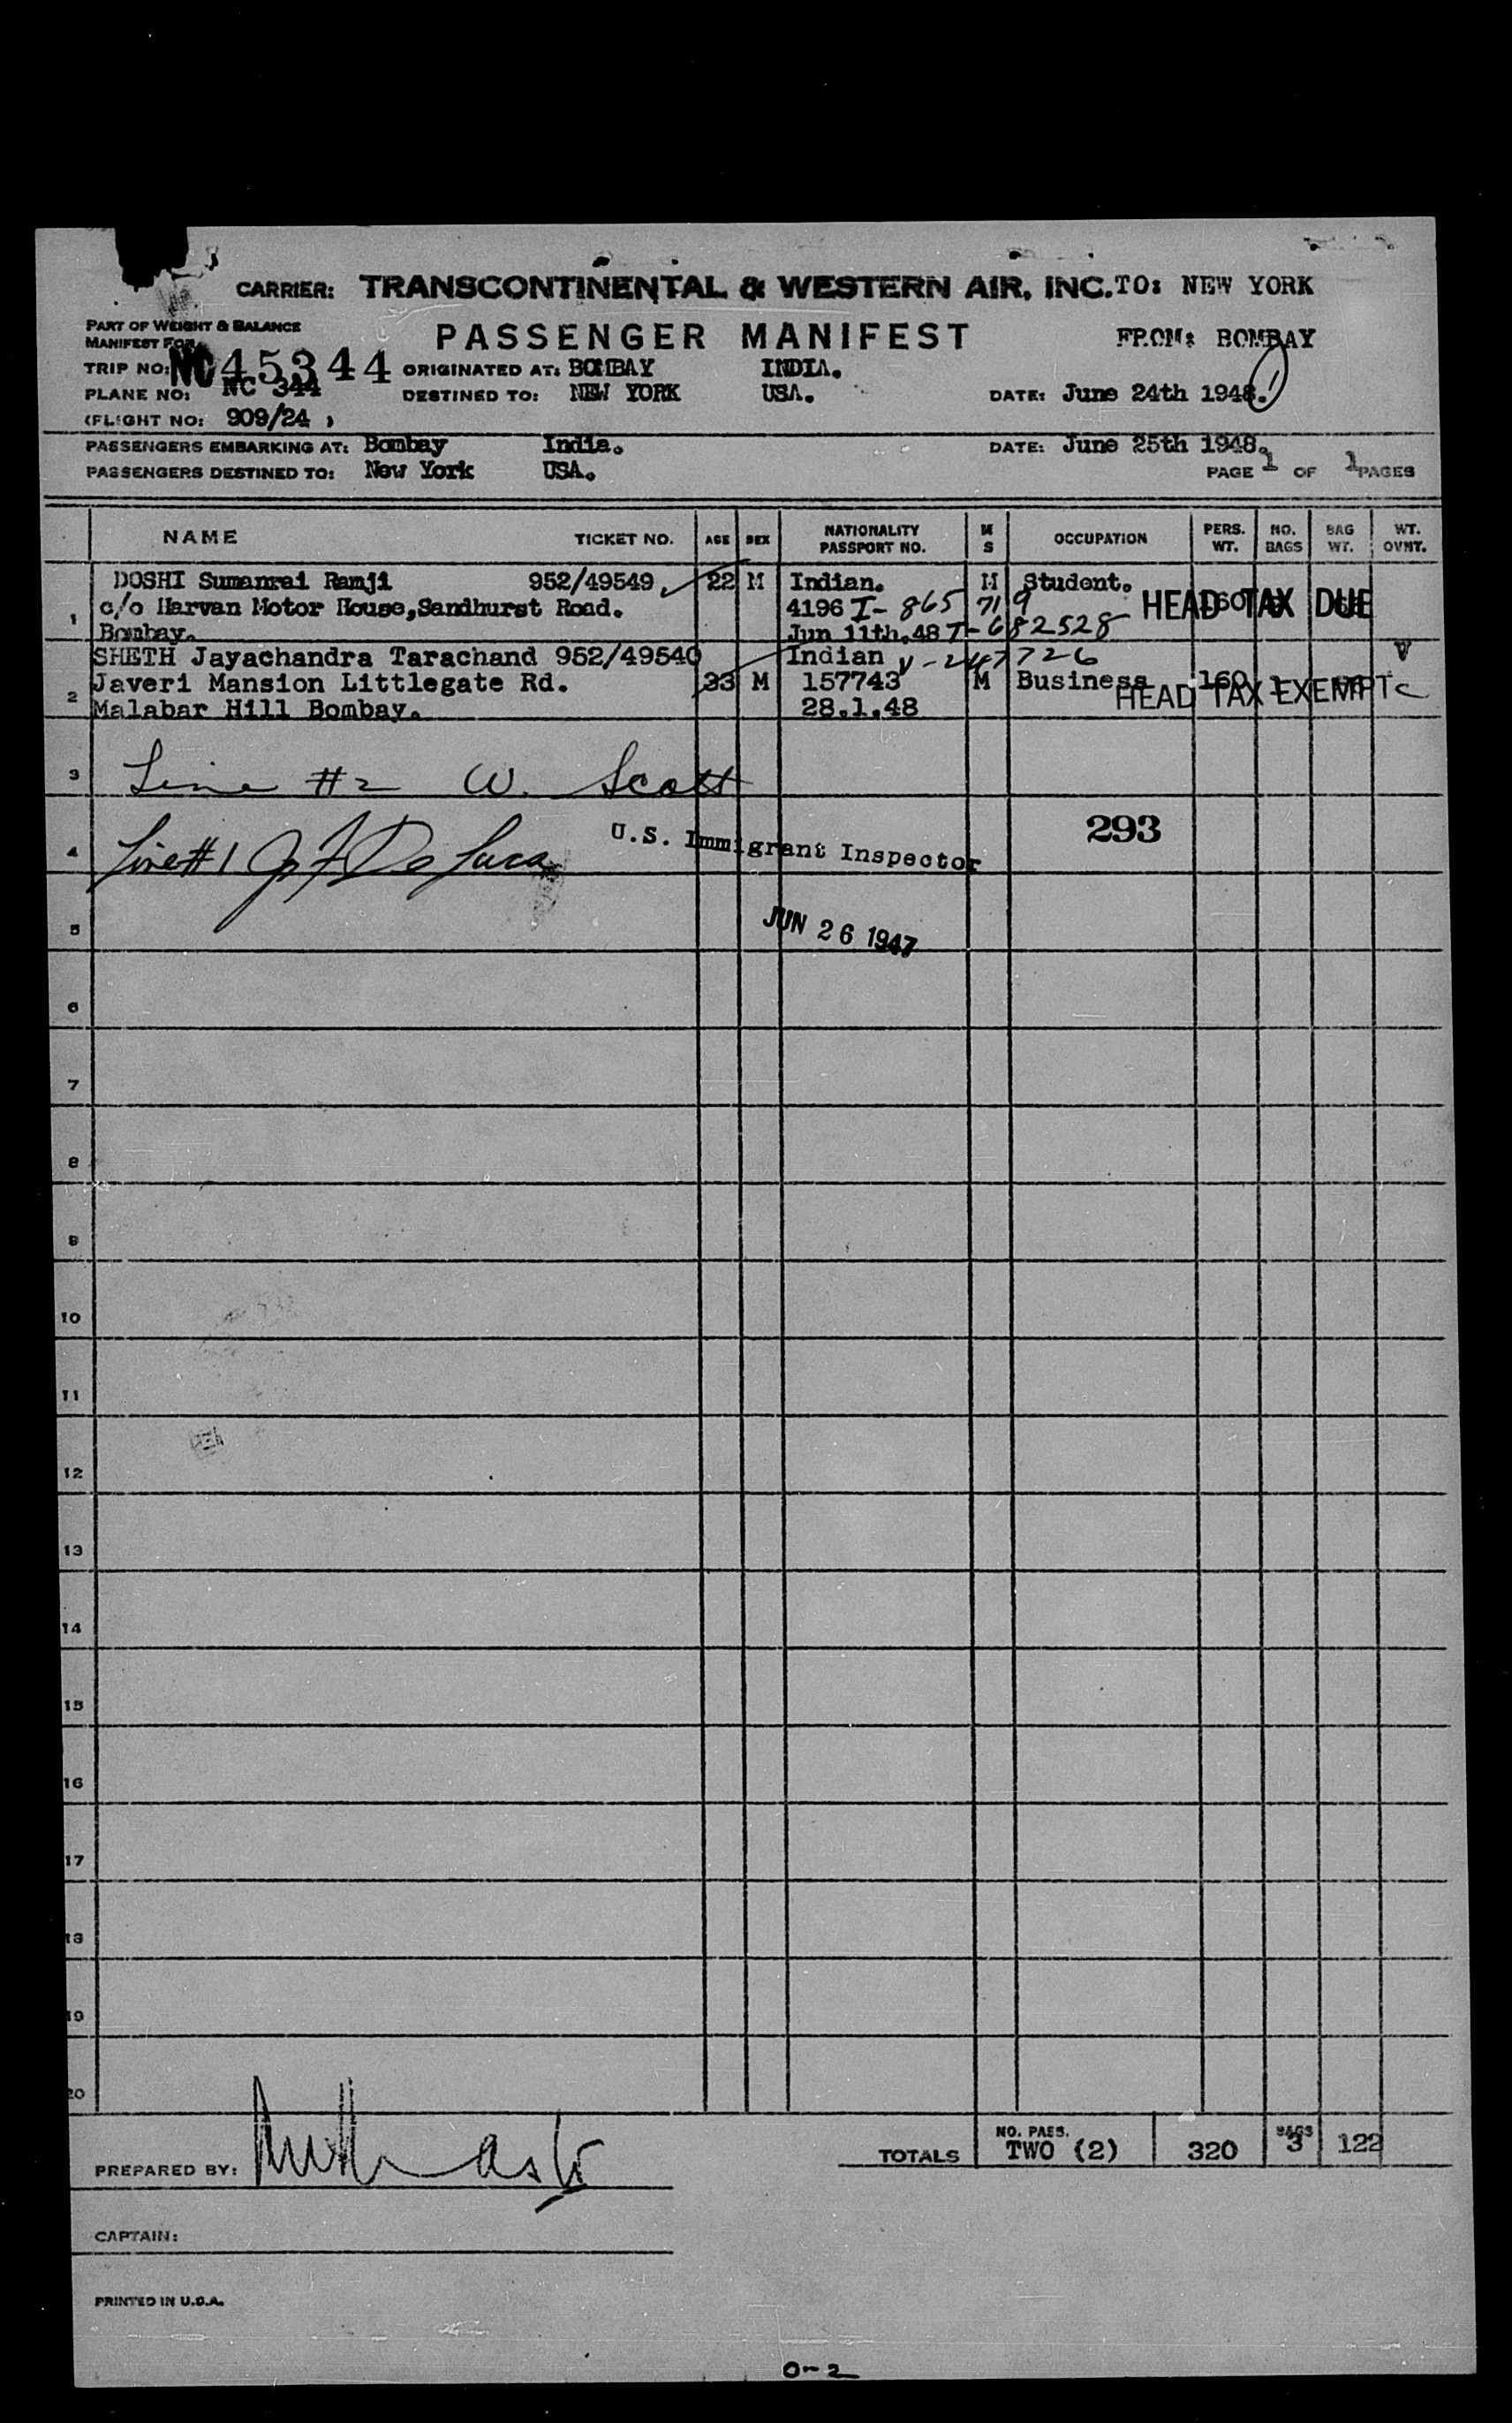 CARRIER: TRANSCONTINENTAL & WESTERN AIR, INC. TO: NEW YORK
PART OF WEIGHT & BALANCE
MANIFEST FOR
PASSENGER MANIFEST FROM: BOMBAY
TRIP NO: NC 45344 ORIGINATED AT: BOMBAY INDIA.
PLANE NO: NC 344 DESTINED TO: NEW YORK USA. DATE: June 24th 1948.
(FLIGHT NO: 909/24 )
PASSENGERS EMBARKING AT: Bombay India. DATE: June 25th 1948.
PASSENGERS DESTINED TO: New York USA. PAGE 1 OF 1 PAGES
NAME TICKET NO. AGE SEX NATIONALITY PASSPORT NO. M S OCCUPATION PERS. WT. NO. BAGS BAG WT. WT. OVNT.
DOSHI Sumanrai Ramji 952/49549 22 M Indian. M Student.
1 c/o Harvan Motor House,Sandhurst Road. 4196 I-865719 HEAD TAX DUE
Bombay. Jun 11th.48 T-682528
SHETH Jayachandra Tarachand 952/49540 Indian V-247726 V
2 Javeri Mansion Littlegate Rd. 33 M 157743 M Business 160 1 HEAD TAX EXEMPT
Malabar Hill Bombay. 28.1.48
3 Line #2 W. Scott
4 Line #1 De Luca U.S. Immigrant Inspector 293
5 JUN 26 1947
6
7
8
9
10
11
12
13
14
15
16
17
18
19
20
TOTALS NO. PASS. TWO (2) 320 BAGS 3 122
PREPARED BY:
CAPTAIN:
PRINTED IN U.S.A.
0-2